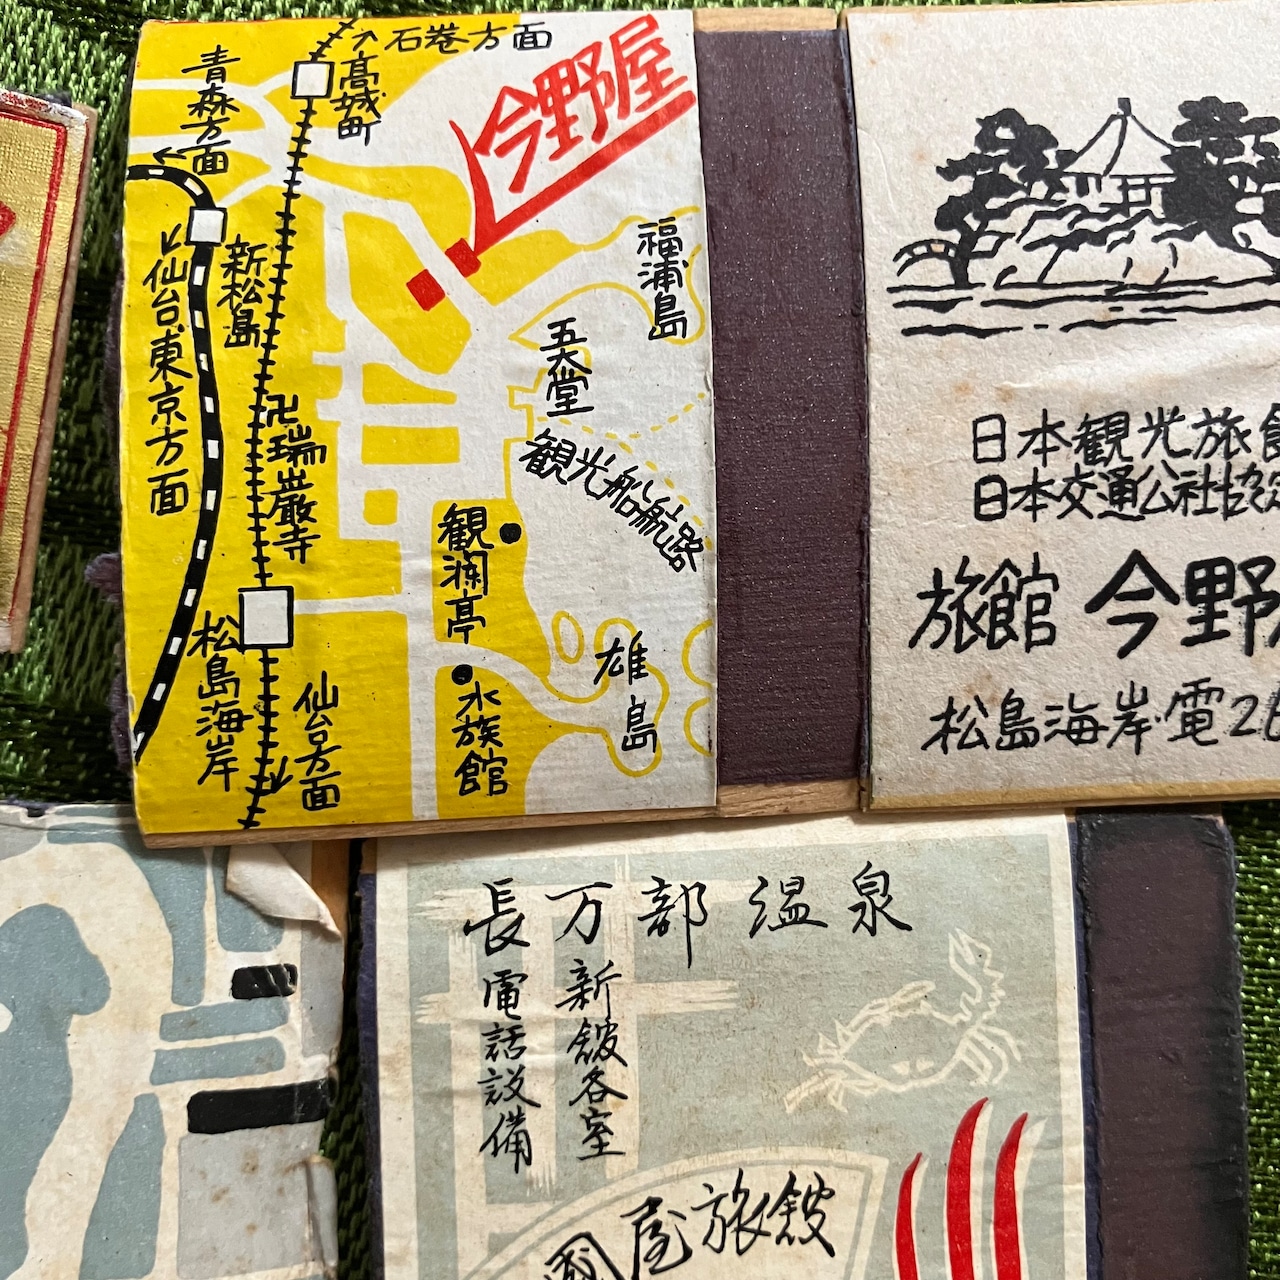 石巻方面
高城町
今野屋
青森方面
新松島
仙台東京方面
福浦島
五大堂
卍瑞巌寺
観光船航路
観瀾亭
松島海岸
雄島
水族館
仙台方面
日本観光旅
日本交通公社協
旅館 今野
松島海岸・電2
長万部温泉
新館各室
電話設備
屋旅館